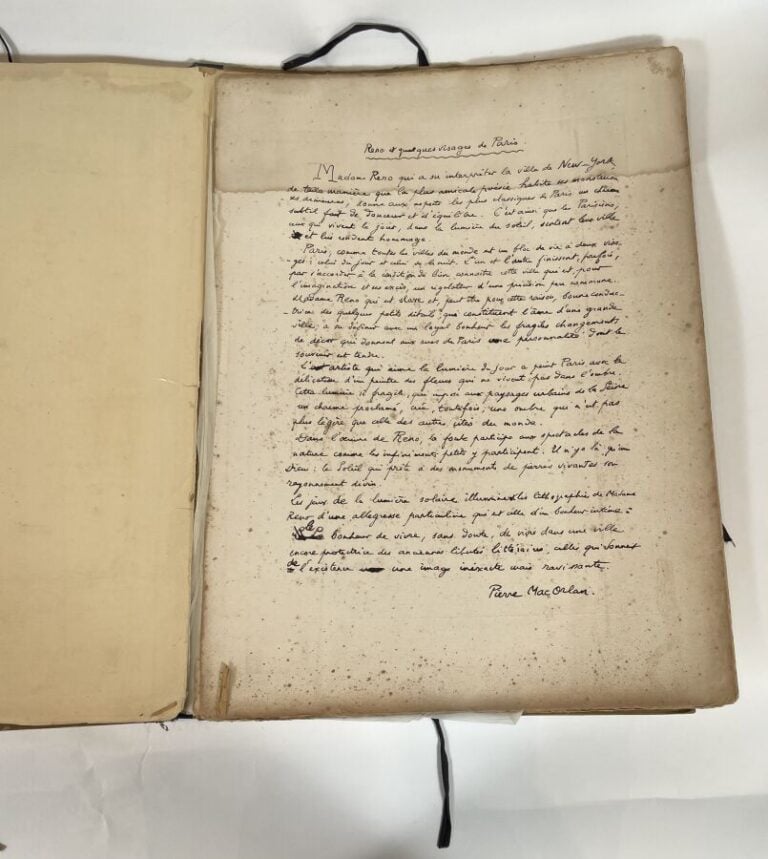 Reno et quelques visages de Paris.
Madame Reno qui a su interpréter la ville de New-York
de telle manière que la plus amicale poésie habite ses monstrueuses
demeures, donne aux aspects les plus classiques de Paris un charme
subtil fait de douceur et d'équilibre. C'est ainsi que les Parisiens,
ceux qui vivent le jour, dans la lumière du soleil, sentent leur ville
et lui rendent hommage.
Paris, comme toutes les villes du monde est un bloc de vie à deux visa-
ges : celui du jour et celui de la nuit. L'un et l'autre finissent, parfois,
par s'accorder à la condition de bien connaître cette ville qui est, pour
l'imagination et ses excès, un régulateur d'une précision peu commune.
Madame Reno qui est slave et, peut être pour cette raison, bonne conduc-
-trice des quelques petits détails qui constituent l'âme d'une grande
ville, a su définir avec un loyal bonheur les fragiles changements
de décor qui donnent aux rues de Paris une personnalité dont le
souvenir est tendre.
L'artiste qui aime la lumière du jour a peint Paris avec la
délicatesse d'un peintre des fleurs qui ne vivent pas dans l'ombre.
Cette lumière si fragile, qui impose aux paysages urbains de la Seine
un charme proclamé, crée, toutefois, une ombre qui n'est pas
plus légère que celle des autres cités du monde.
Dans l'œuvre de Reno, la foule participe aux spectacles de la
nature comme les infiniments petits y participent. Il n'y a là qu'un
Dieu : le Soleil qui prête à des monuments de pierres vivantes son
rayonnement divin.
Les jeux de la lumière solaire illuminent les lithographies de Madame
Reno d'une allegresse particulière qui est celle d'un bonheur intime :
le bonheur de vivre, sans doute, de vivre dans une ville
encore protectrice des anciennes libertés littéraires, celles qui donnent
de l'existence une image inexacte mais ravissante.
Pierre Mac Orlan.